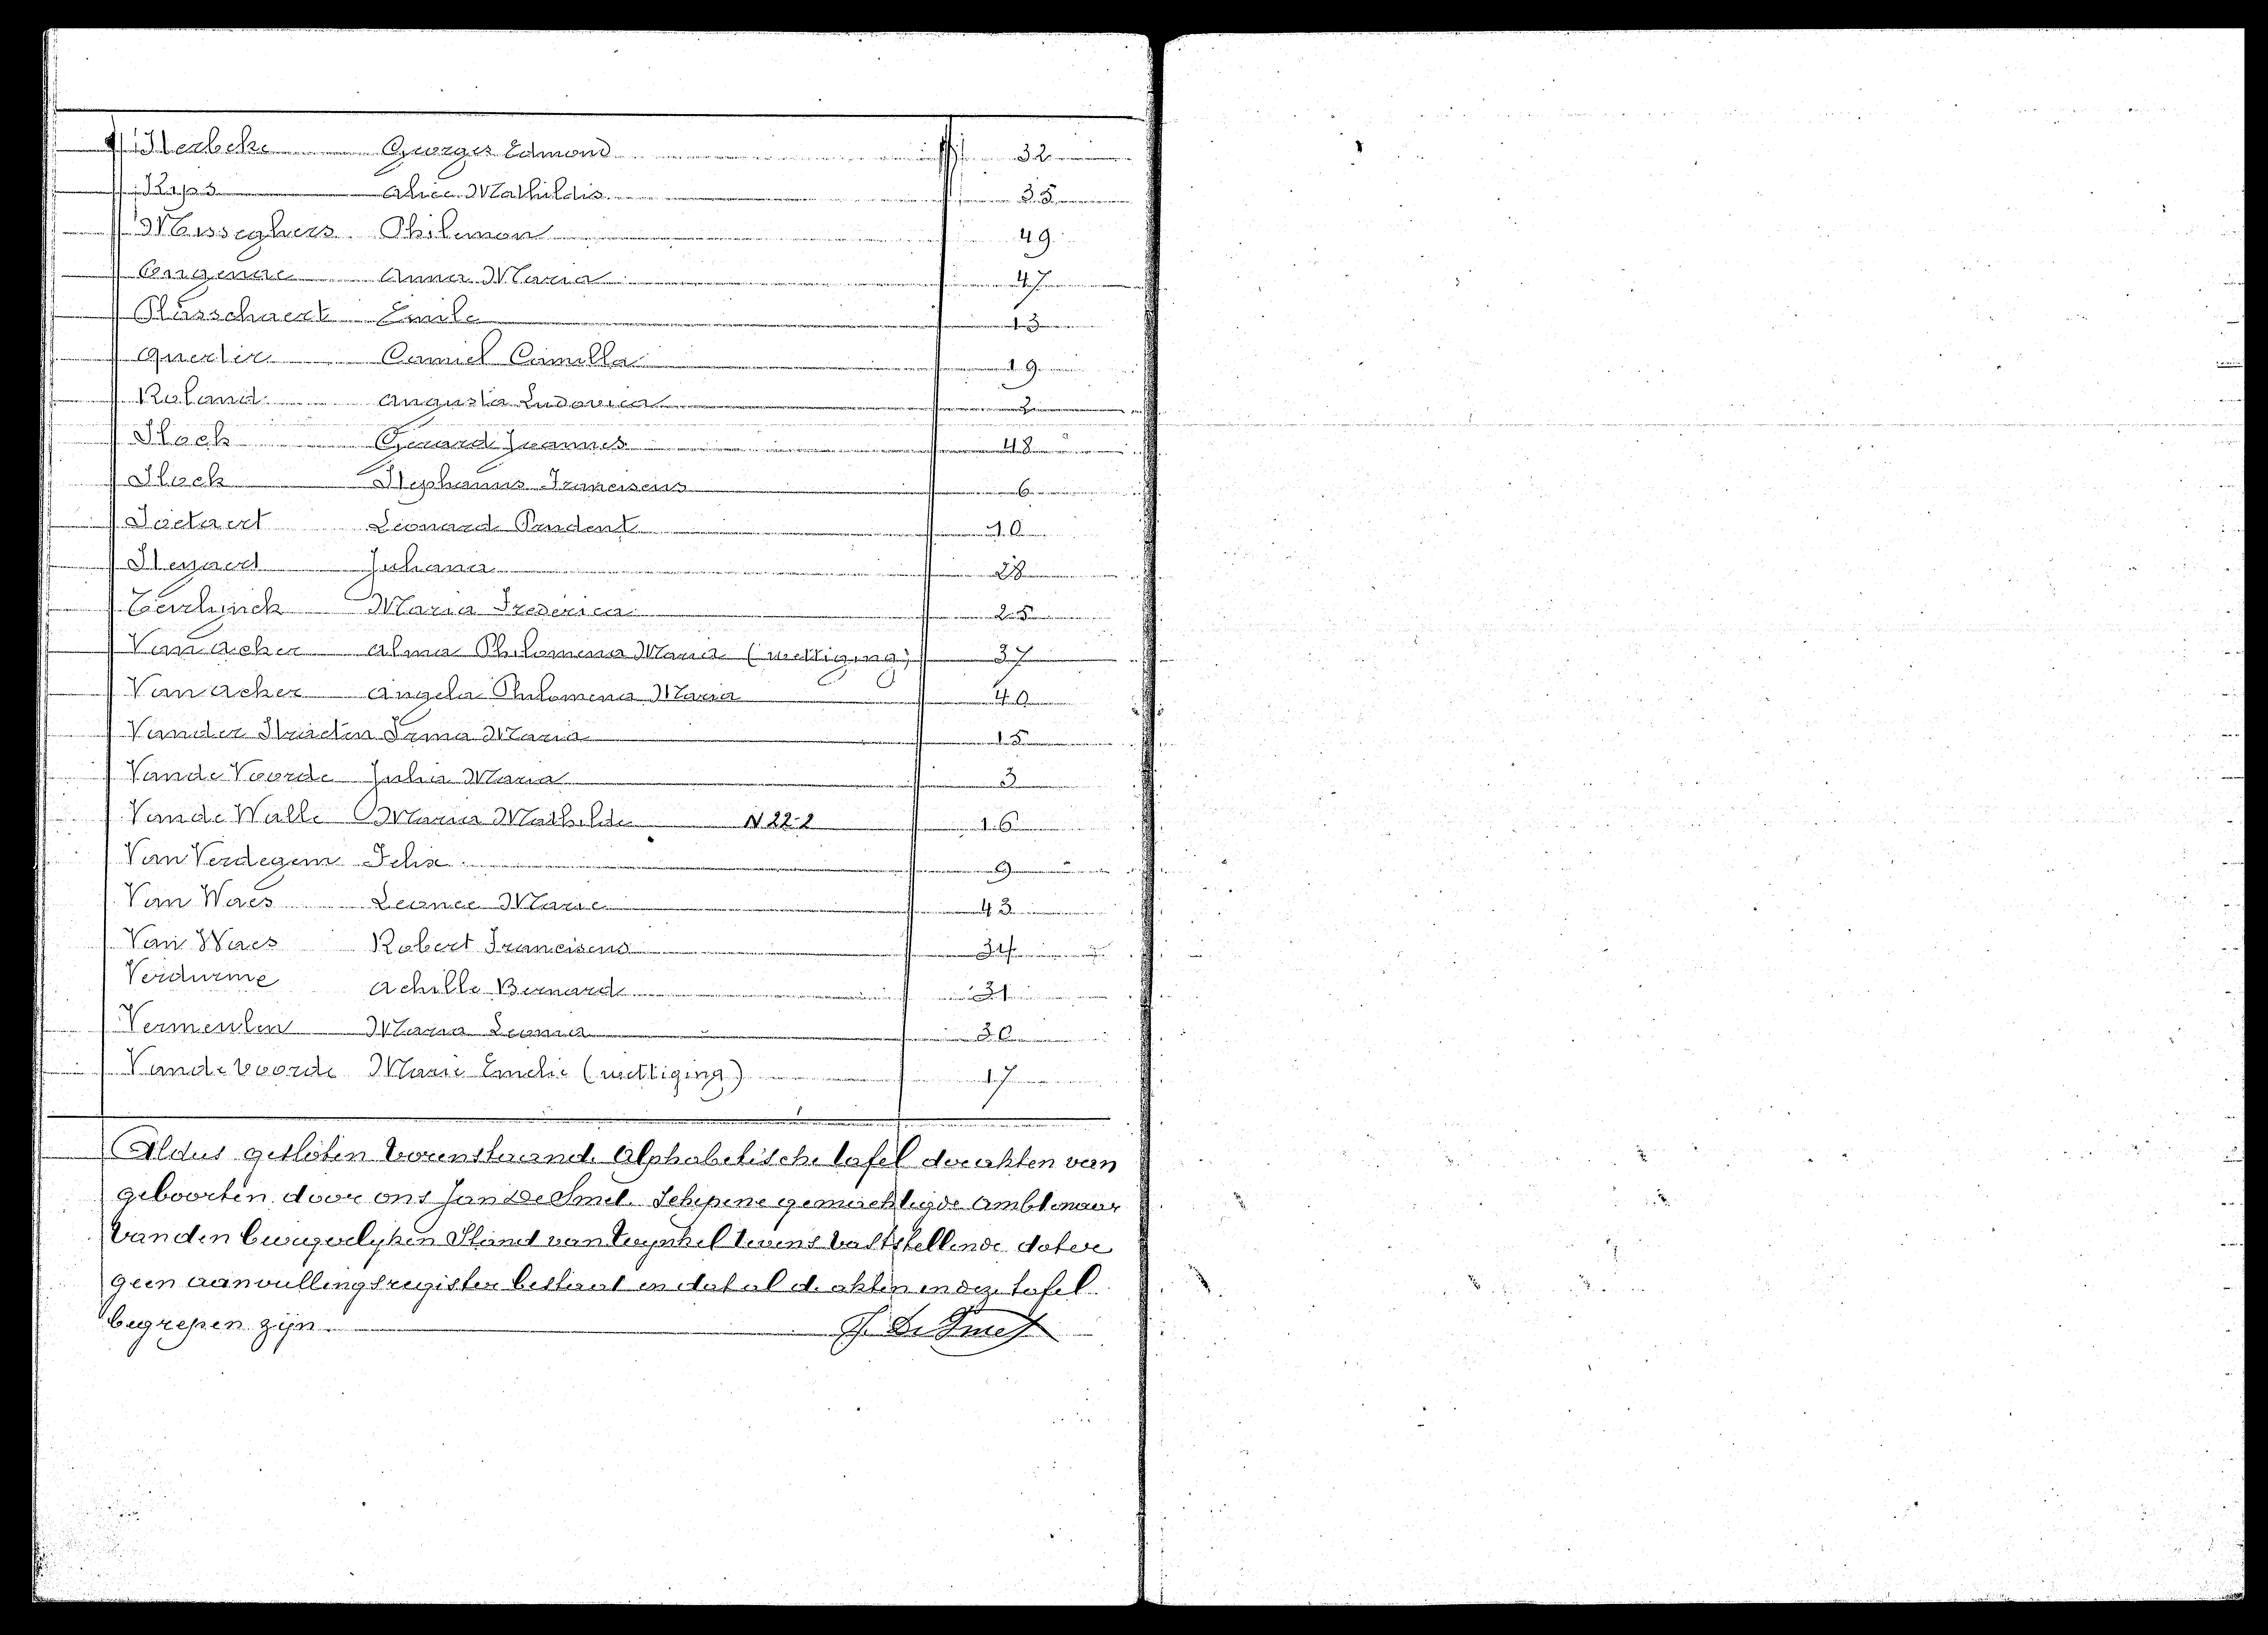 Herbeke Georges Edmond 32
Kips Alice Mathildis 35
Musseghers Philemon 49
Ongenae Anna Maria 47
Plasschaert Emile 13
Querlir Camiel Camilla 19
Roland Augusta Ludovica 2
Slock Gerard Joannes 48
Slock Stephanus Franciscus 6
Soetaert Leonard Prudent 10
Steyaert Juliana 28
Teerlynck Maria Frederica 25
Van Acker Alma Philomena Maria (wettiging) 37
Van Acker Angela Philomena Maria 40
Vander Straeten Irma Maria 15
Vande Voorde Julia Maria 3
Vande Walle Maria Mathilde N 22-2 16
Van Verdegem Felix 9
Van Waes Leonce Marie 43
Van Waes Robert Franciscus 34
Verdurme Achille Bernard 31
Vermeulen Maria Leonia 30
Vande voorde Marie Emelie (wettiging) 17
Aldus gesloten bovenstaande Alphabetische tafel der akten van
geboorten door ons Jan De Smet Schepene gemachtigde Ambtenaar
van den burgerlyken Stand van tevens vaststellende dat er
geen aanvullingsregister bestaat en dat al de akten in deze tafel
begrepen zijn.
J. De Smet